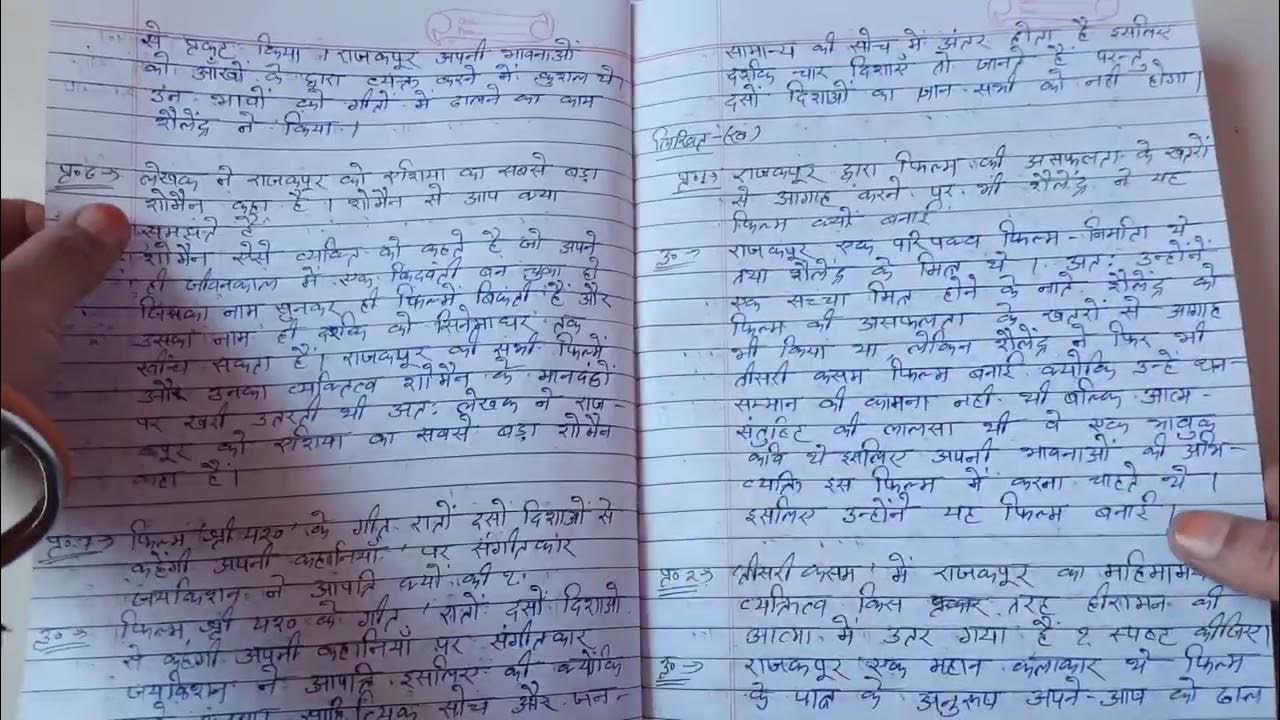 से प्रकट किया । राजकपूर अपनी भावनाओं
को आँखों के द्वारा व्यक्त करने में कुशल थे।
उन भावों को गीतों में ढालने का काम
शैलेंद्र ने किया ।
प्र०६→ लेखक ने राजकपूर को एशिया का सबसे बड़ा
शोमैन कहा है । शोमैन से आप क्या
समझते हैं
शोमैन ऐसे व्यक्ति को कहते है जो अपने
ही जीवनकाल में एक किंदवती बन चुका हो
जिसका नाम सुनकर ही फिल्में बिकती हैं और
उसका नाम ही दर्शक को सिनेमाघर तक
खींच सकता हैं। राजकपूर की सभी फिल्में
और उनका व्यक्तित्व शोमैन के मानदंडों
पर खरी उतरती थी अत: लेखक ने राज-
कपूर को एशिया का सबसे बड़ा शोमैन
कहा हैं।
प्र०७→ फिल्म 'श्री ४२०' के गीत 'रातों दसों दिशाओं से
कहेंगी अपनी कहानियाँ' पर संगीतकार
जयकिशन ने आपत्ति क्यों की ?
उ०→ फिल्म श्री ४२० के गीत 'रातों दसों दिशाओ
से कहेगी अपनी कहानियाँ पर संगीतकार
जयकिशन ने आपत्ति इसलिए की क्योंकि
साहित्यिक सोच और जन-
सामान्य की सोच में अंतर होता है इसलिए
दर्शक चार दिशाएँ तो जानते हैं परन्तु
दसों दिशाओं का ज्ञान सभी को नहीं होगा।
लिखित-(ख)
प्र०१→ राजकपूर द्वारा फिल्म की असफलता के खतरों
से आगाह करने पर भी शैलेंद्र ने यह
फिल्म क्यों बनाई
उ०→ राजकपूर एक परिपक्व फिल्म-निर्माता थे
तथा शैलेंद्र के मित्र थे । अत: उन्होंनें
एक सच्चा मित्र होने के नाते शैलेंद्र को
फिल्म की असफलता के खतरों से आगाह
भी किया था, लेकिन शैलेंद्र ने फिर भी
तीसरी कसम फिल्म बनाई क्योकि उन्हें धन-
सम्मान की कामना नहीं थी बल्कि आत्म-
संतुष्टि की लालसा थी वे एक भावुक
कवि थे इसलिए अपनी भावनाओं की अभि-
व्यक्ति इस फिल्म में करना चाहते थे ।
इसलिए उन्होंने यह फिल्म बनाई ।
प्र०२→ 'तीसरी कसम' में राजकपूर का महिमामय
व्यक्तित्व किस तरह हीरामन की
आत्मा में उतर गया हैं ? स्पष्ट कीजिए।
उ०→ राजकपूर एक महान कलाकार थे फिल्म
के पात्र के अनुरूप अपने-आप को ढाल